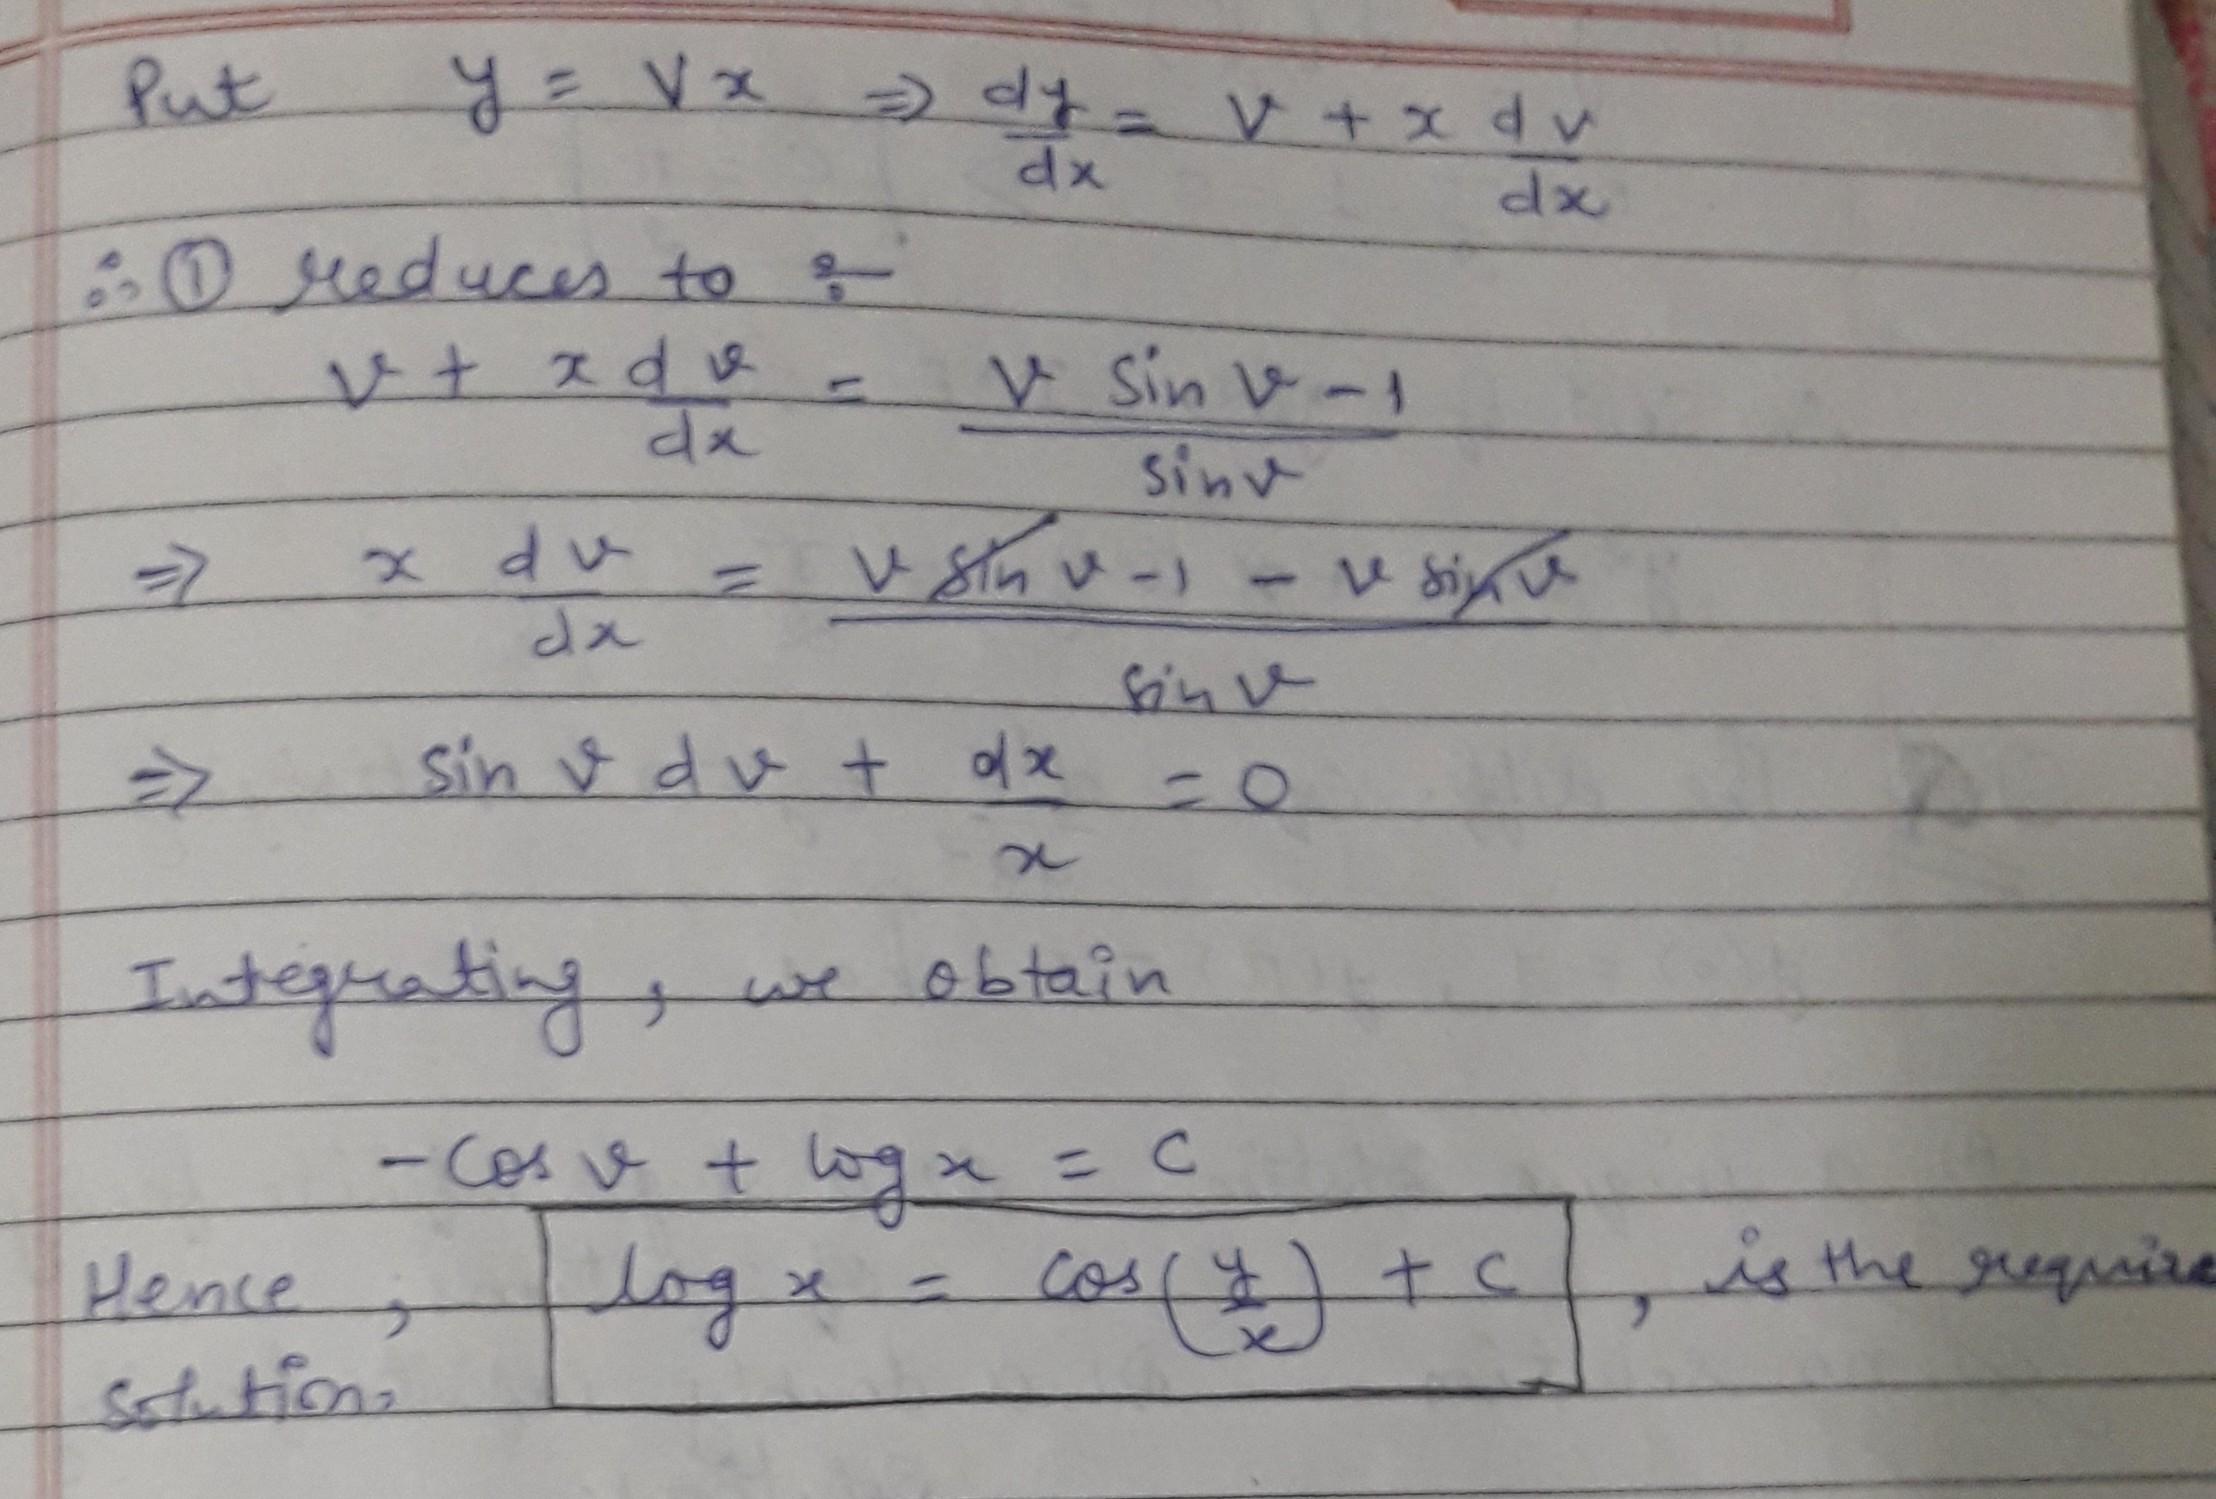 Put y = Vx ⇒ dy/dx = v + x dv/dx
∴ ① reduces to :-
v + x dv/dx = (v sin v - 1)/(sin v)
⇒ x dv/dx = (v sin v - 1 - v sin v)/(sin v)
⇒ sin v dv + dx/x = 0
Integrating, we obtain
-cos v + log x = c
Hence, log x = cos(y/x) + c, is the require
solution.